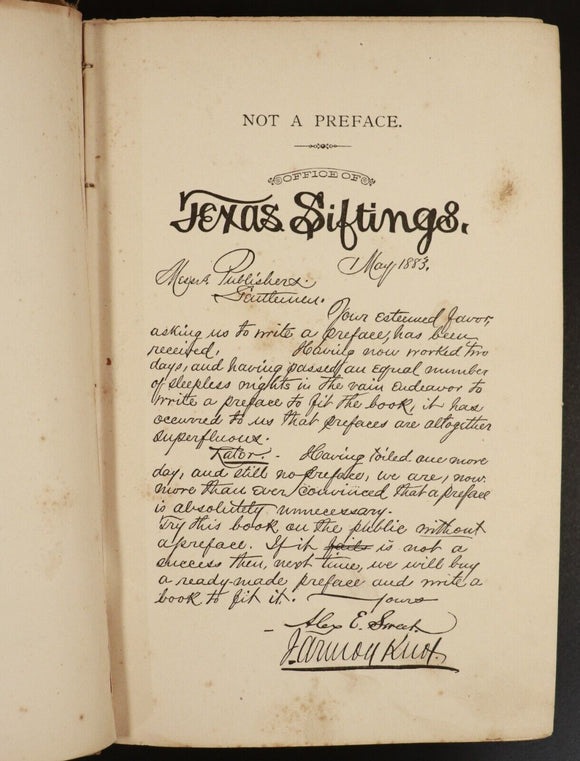 NOT A PREFACE.
OFFICE OF
Texas Siftings.
May 1883.
Messrs Publishers.
Gentlemen.
Your esteemed favor,
asking us to write a preface, has been
received. Having now worked two
days, and having passed an equal number
of sleepless nights in the vain endeavor to
write a preface to fit the book, it has
occurred to us that prefaces are altogether
superfluous.
Later. - Having toiled one more
day, and still no preface, we are, now
more than ever convinced that a preface
is absolutely unnecessary.
Try this book on the public without
a preface. If it fails is not a
success then, next time, we will buy
a ready-made preface and write a
book to fit it. Yours
- Alex E. Sweet.
J. Armoy Knox.